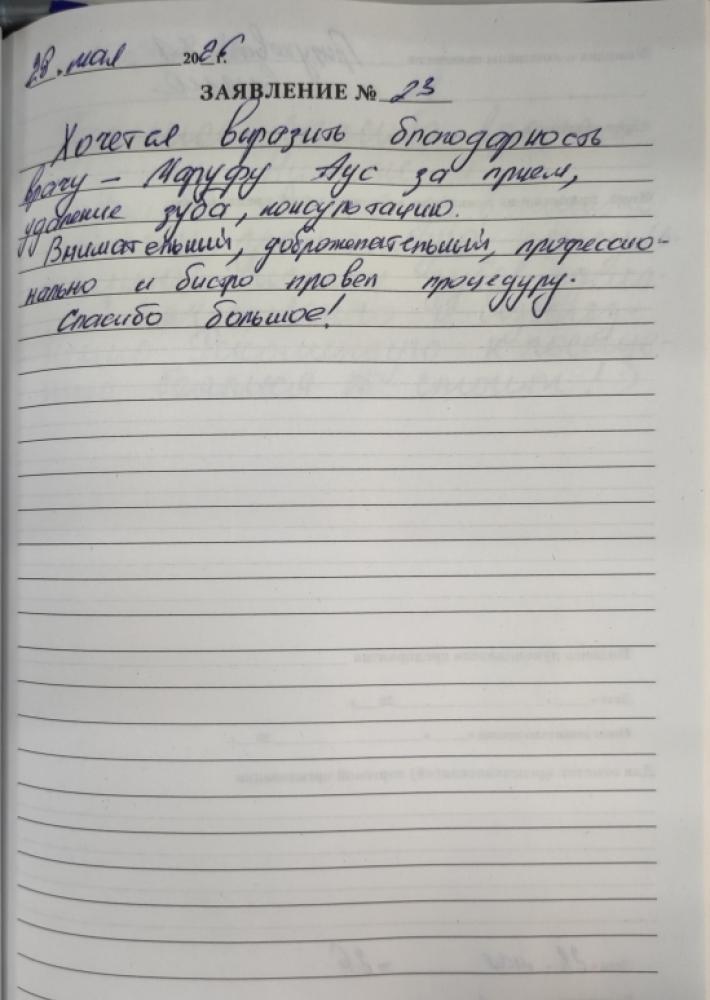 28. мая 2026 г.
ЗАЯВЛЕНИЕ № 23
Хочется выразить благодарность
врачу – Маруфу Аус за прием,
удаление зуба, консультацию.
Внимательный, доброжелательный, профессио-
нально и быстро провел процедуру.
Спасибо большое!